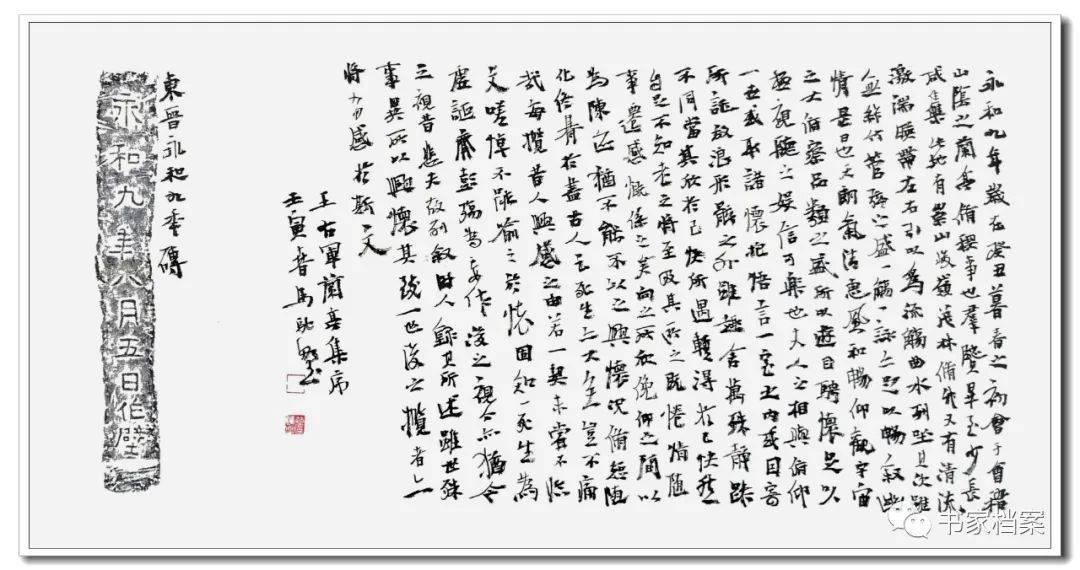 永和九年歲在癸丑暮春之初會于會稽
山陰之蘭亭脩稧事也羣賢畢至少長
咸集此地有崇山峻嶺茂林脩竹又有清流
激湍暎帶左右引以為流觴曲水列坐其次雖
無絲竹管弦之盛一觴一詠亦足以暢敘幽
情是日也天朗氣清惠風和暢仰觀宇宙
之大俯察品類之盛所以遊目騁懷足以
極視聽之娛信可樂也夫人之相與俯仰
一世或取諸懷抱悟言一室之內或因寄
所託放浪形骸之外雖趣舍萬殊靜躁
不同當其欣於己快所遇輙得於己快然
自足不知老之將至及其所之既惓情隨
事遷感慨係之矣向之所欣俛仰之間以
為陳迹猶不能不以之興懷況脩短隨
化終期於盡古人云死生亦大矣豈不痛
哉每攬昔人興感之由若一契未嘗不臨
文嗟悼不能喻之於懷固知一死生為
虛誕齊彭殤為妄作後之視今亦猶今
之視昔悲夫故列敘時人錄其所述雖世殊
事異所以興懷其致一也後之攬者亦
將有感於斯文
王右軍蘭亭集序
壬寅春馬書
東晉永和九年磚
永和九年八月五日作壁
书家档案